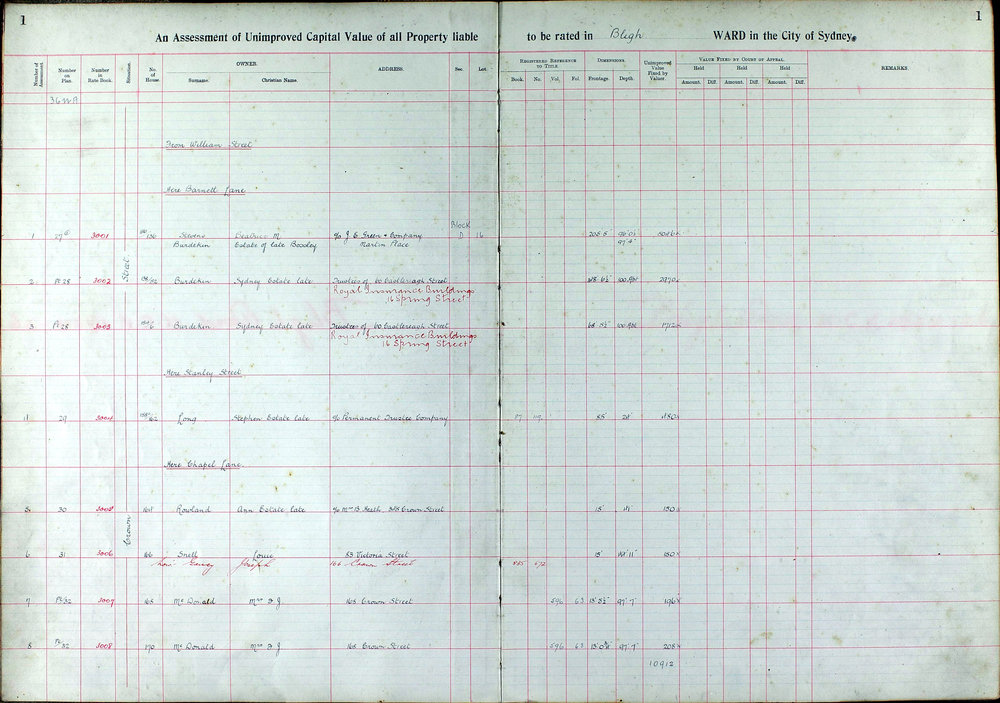 1
1
An Assessment of Unimproved Capital Value of all Property liable to be rated in Bligh WARD in the City of Sydney.
Number of Assessment. Number on Plan. Number in Rate Book. Situation. No. of House. OWNER. Surname. Christian Name. ADDRESS. Sec. Lot. REGISTERED REFERENCE TO TITLE Book. No. Vol. Fol. DIMENSIONS. Frontage. Depth. Unimproved Value Fixed by Valuer. VALUE FIXED BY COURT OF APPEAL. Held Amount. Diff. Held Amount. Diff. Held Amount. Diff. REMARKS
Crown Street
From William Street
Here Barnett Lane
Block
1 27 3001 136 Stevens Beatrice M. c/o J. E. Green & Company D 16
Burdekin Estate of late Beverley Martin Place 97' 4"
2 Pt 28 3002 Burdekin Sydney Estate late Trustees of 60 Castlereagh Street 2970
Royal Insurance Buildings
16 Spring Street
3 Pt 28 3003 Burdekin Sydney Estate late Trustees of 60 Castlereagh Street 1712
Royal Insurance Buildings
16 Spring Street
Here Stanley Street
4 29 3004 162 Long Stephen Estate late c/o Permanent Trustee Company
Here Chapel Lane.
5 30 3005 164 Rowland Ann Estate late c/o Mrs B. Heath Crown Street 15' 150
6 31 3006 166 Snell Louie 83 Victoria Street 15' 150
Joseph 166 Crown Street
7 Pt 32 3007 168 McDonald Mrs F. J. 168 Crown Street 596 63 97' 7" 196
8 Pt 32 3008 170 McDonald Mrs F. J. 168 Crown Street 596 63 97' 7" 208
10912